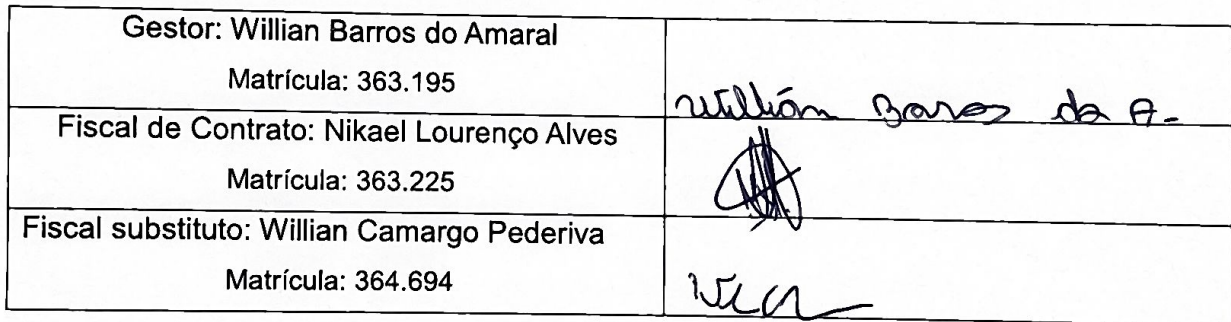 Gestor: Willian Barros do Amaral
Matrícula: 363.195
Willián Barros do A.
Fiscal de Contrato: Nikael Lourenço Alves
Matrícula: 363.225
Fiscal substituto: Willian Camargo Pederiva
Matrícula: 364.694